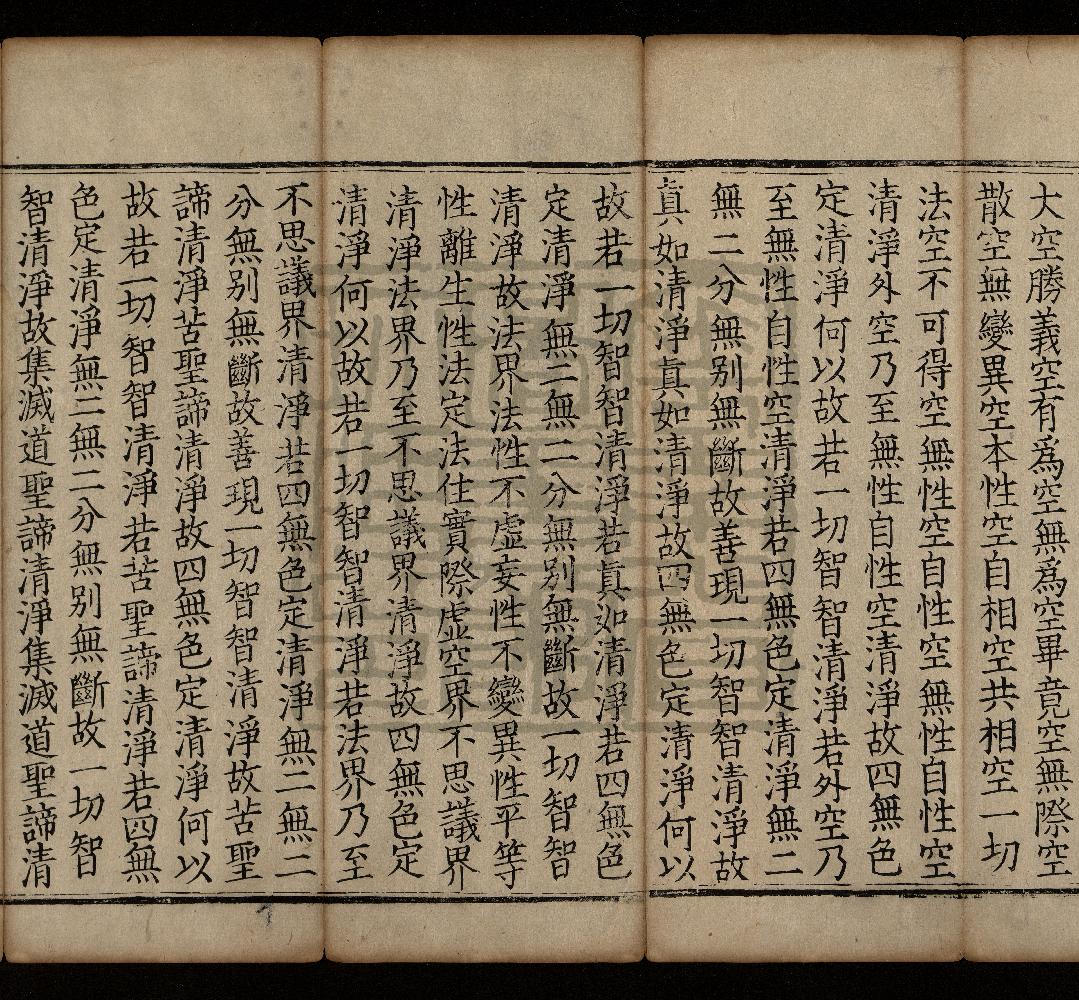 大空勝義空有爲空無爲空畢竟空無際空
散空無變異空本性空自相空共相空一切
法空不可得空無性空自性空無性自性空
清淨外空乃至無性自性空清淨故四無色
定清淨何以故若一切智智清淨若外空乃
至無性自性空清淨若四無色定清淨無二
無二分無别無斷故善現一切智智清淨故
真如清淨真如清淨故四無色定清淨何以
故若一切智智清淨若真如清淨若四無色
定清淨無二無二分無别無斷故一切智智
清淨故法界法性不虛妄性不變異性平等
性離生性法定法住實際虛空界不思議界
清淨法界乃至不思議界清淨故四無色定
清淨何以故若一切智智清淨若法界乃至
不思議界清淨若四無色定清淨無二無二
分無别無斷故善現一切智智清淨故苦聖
諦清淨苦聖諦清淨故四無色定清淨何以
故若一切智智清淨若苦聖諦清淨若四無
色定清淨無二無二分無别無斷故一切智
智清淨故集滅道聖諦清淨集滅道聖諦清